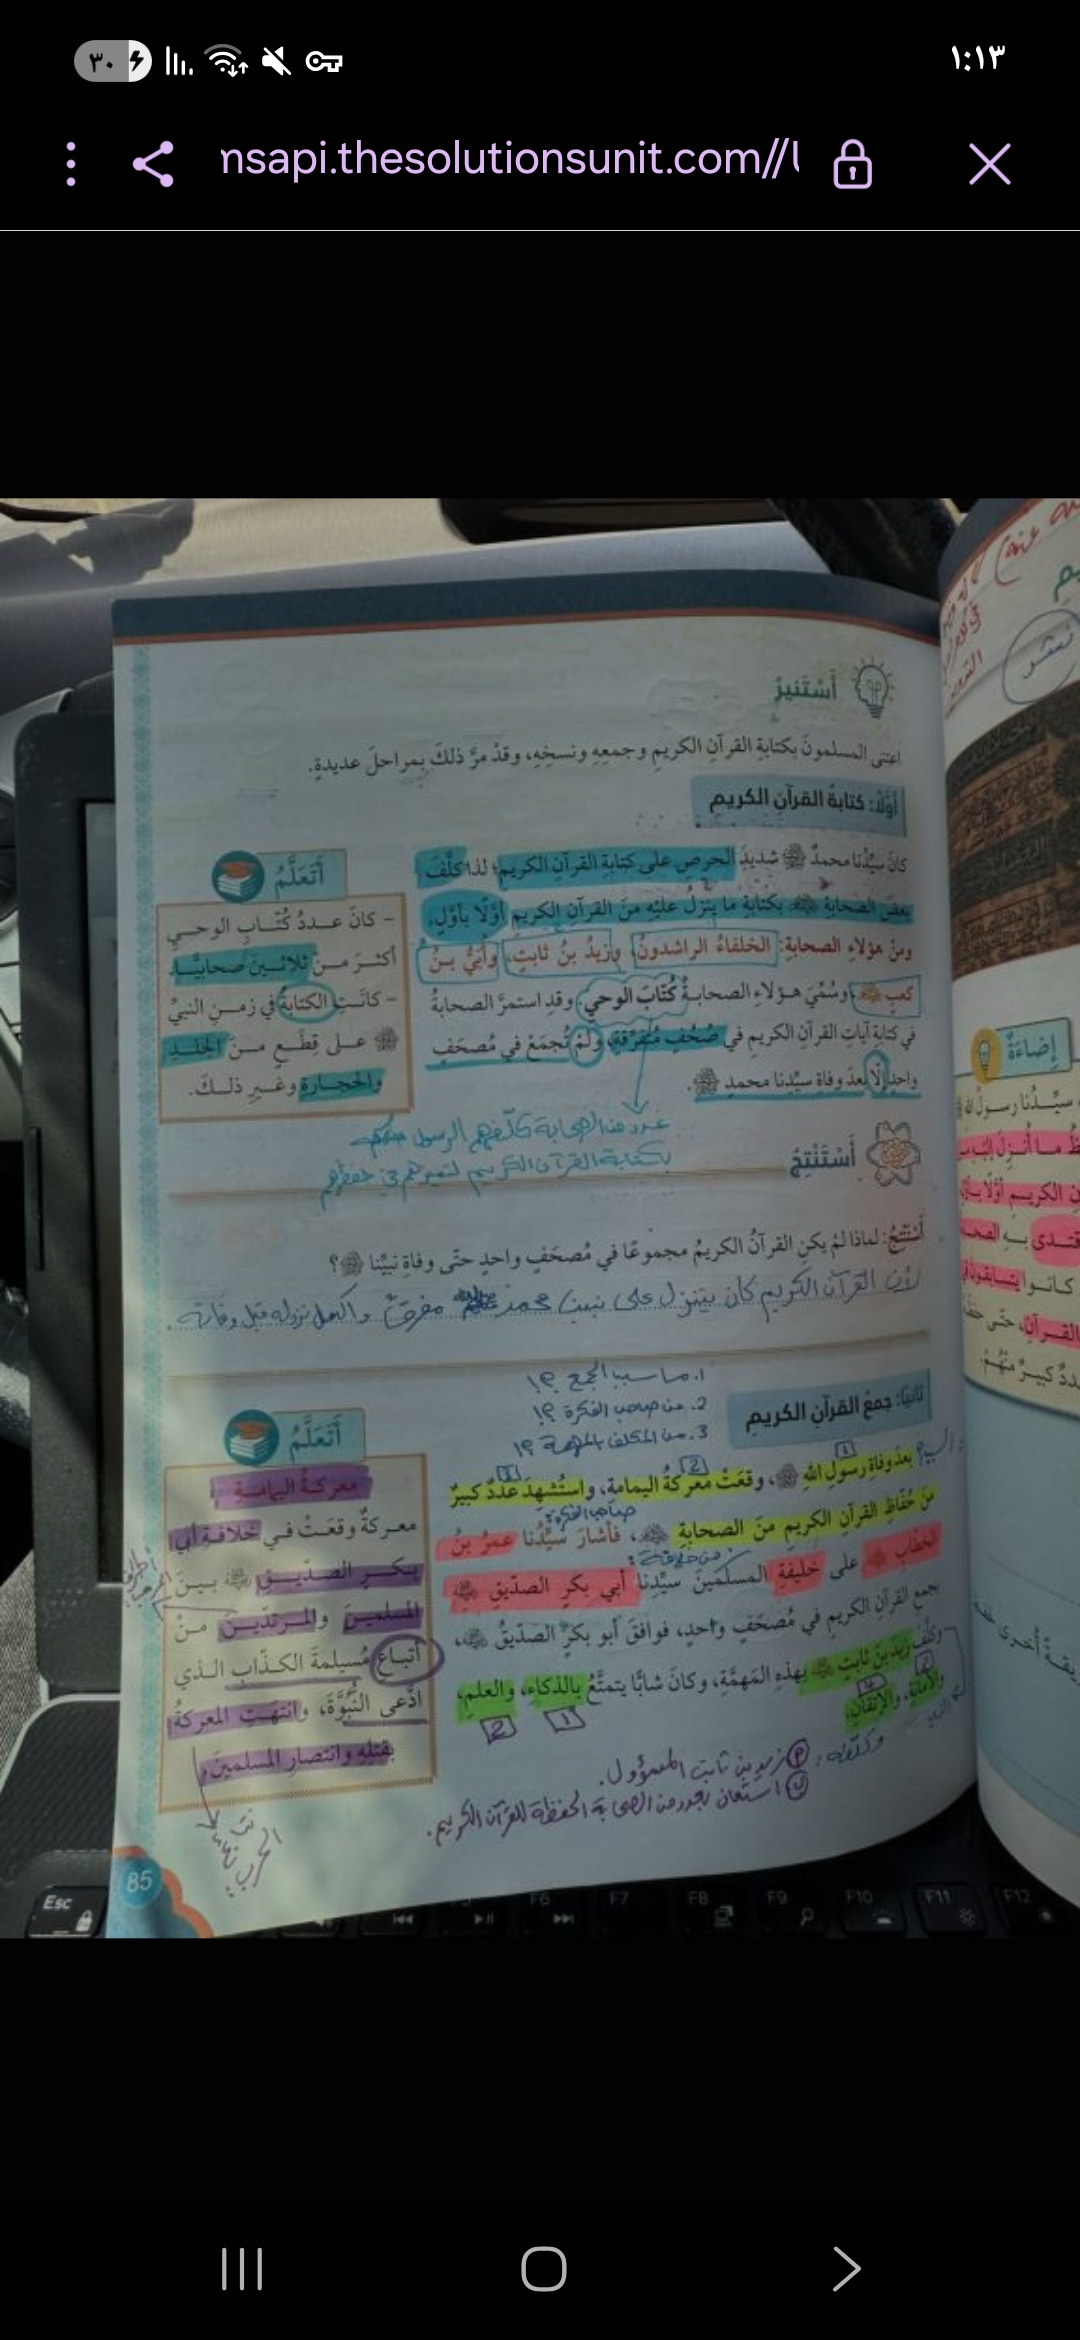 ٣٠
١:١٣
nsapi.thesolutionsunit.com//
أَسْتَنيرُ
اعتنى المسلمونَ بكتابةِ القرآنِ الكريمِ وجمعِهِ ونسخِهِ، وقدْ مرَّ ذلكَ بِمراحلَ عديدةٍ.
أَوَّلًا: كتابةُ القرآنِ الكريمِ
كانَ سيِّدُنا محمدٌ ﷺ شديدَ الحرصِ على كتابةِ القرآنِ الكريمِ؛ لذا كلَّفَ
بعضَ الصحابةِ بكتابةِ ما ينزلُ عليْهِ منَ القرآنِ الكريمِ أوَّلًا بأوَّلٍ،
ومنْ هؤلاءِ الصحابةِ: الخلفاءُ الراشدونَ، وزيدُ بنُ ثابتٍ، وأُبَيُّ بنُ
كعبٍ، وسُمِّيَ هؤلاءِ الصحابةُ كُتّابَ الوحيِ. وقدِ استمرَّ الصحابةُ
في كتابةِ آياتِ القرآنِ الكريمِ في صُحُفٍ مُتفرِّقةٍ، ولمْ تُجمَعْ في مُصحَفٍ
واحدٍ إلّا بعدَ وفاةِ سيِّدِنا محمدٍ ﷺ.
أَتَعَلَّمُ
- كانَ عددُ كُتّابِ الوحيِ
أكثرَ منْ ثلاثينَ صحابيًّا.
- كانَتِ الكتابةُ في زمنِ النبيِّ
ﷺ على قِطَعٍ منَ الجلدِ
والحجارةِ وغيرِ ذلكَ.
عدد من الصحابة كلّفهم الرسول ﷺ
بكتابة القرآن الكريم لتميزهم في حفظهم
أَسْتَنْتِجُ
أَسْتَنْتِجُ: لماذا لمْ يكنِ القرآنُ الكريمُ مجموعًا في مُصحَفٍ واحدٍ حتّى وفاةِ نبيِّنا ﷺ؟
لأن القرآن الكريم كان يتنزل على نبينا محمد ﷺ مفرقًا واكتمل نزوله قبل وفاته.
ثانيًا: جمعُ القرآنِ الكريمِ
1. ما سبب الجمع ؟!
2. من صاحب الفكرة ؟!
3. من المكلف بالمهمة ؟!
السبب
1
بعدَ وفاةِ رسولِ اللهِ ﷺ، وقعَتْ معركةُ اليمامةِ، واستُشهِدَ عددٌ كبيرٌ
2
3
منْ حُفّاظِ القرآنِ الكريمِ منَ الصحابةِ، فأشارَ سيِّدُنا عمرُ بنُ
صاحب الفكرة
الخطّابِ على خليفةِ المسلمينَ سيِّدِنا أبي بكرٍ الصدّيقِ
بجمعِ القرآنِ الكريمِ في مُصحَفٍ واحدٍ، فوافقَ أبو بكرٍ الصدّيقُ،
وكلَّفَ زيدَ بنَ ثابتٍ بهذِهِ المَهمَّةِ، وكانَ شابًّا يتمتَّعُ بالذكاءِ، والعلمِ،
والأمانةِ، والإتقانِ.
1
2
4
وكلّفه:
أ زيد بن ثابت المسؤول.
ب استعان بعدد من الصحابة الحفظة للقرآن الكريم.
أَتَعَلَّمُ
معركةُ اليمامةِ
معركةٌ وقعَتْ في خلافةِ أبي
بكرٍ الصدّيقِ بينَ
المسلمينَ والمرتدّينَ منْ
أتباعِ مُسيلمةَ الكذّابِ الذي
ادَّعى النُّبُوَّةَ، وانتهَتِ المعركةُ
بقتلِهِ وانتصارِ المسلمينَ.
85
إضاءَةٌ
سيِّدُنا رسولُ اللهِ
القرآنَ، حتّى
عددٌ كبيرٌ منْهُمْ.
نشر
Esc
F6
F7
F8
F9
F10
F11
F12